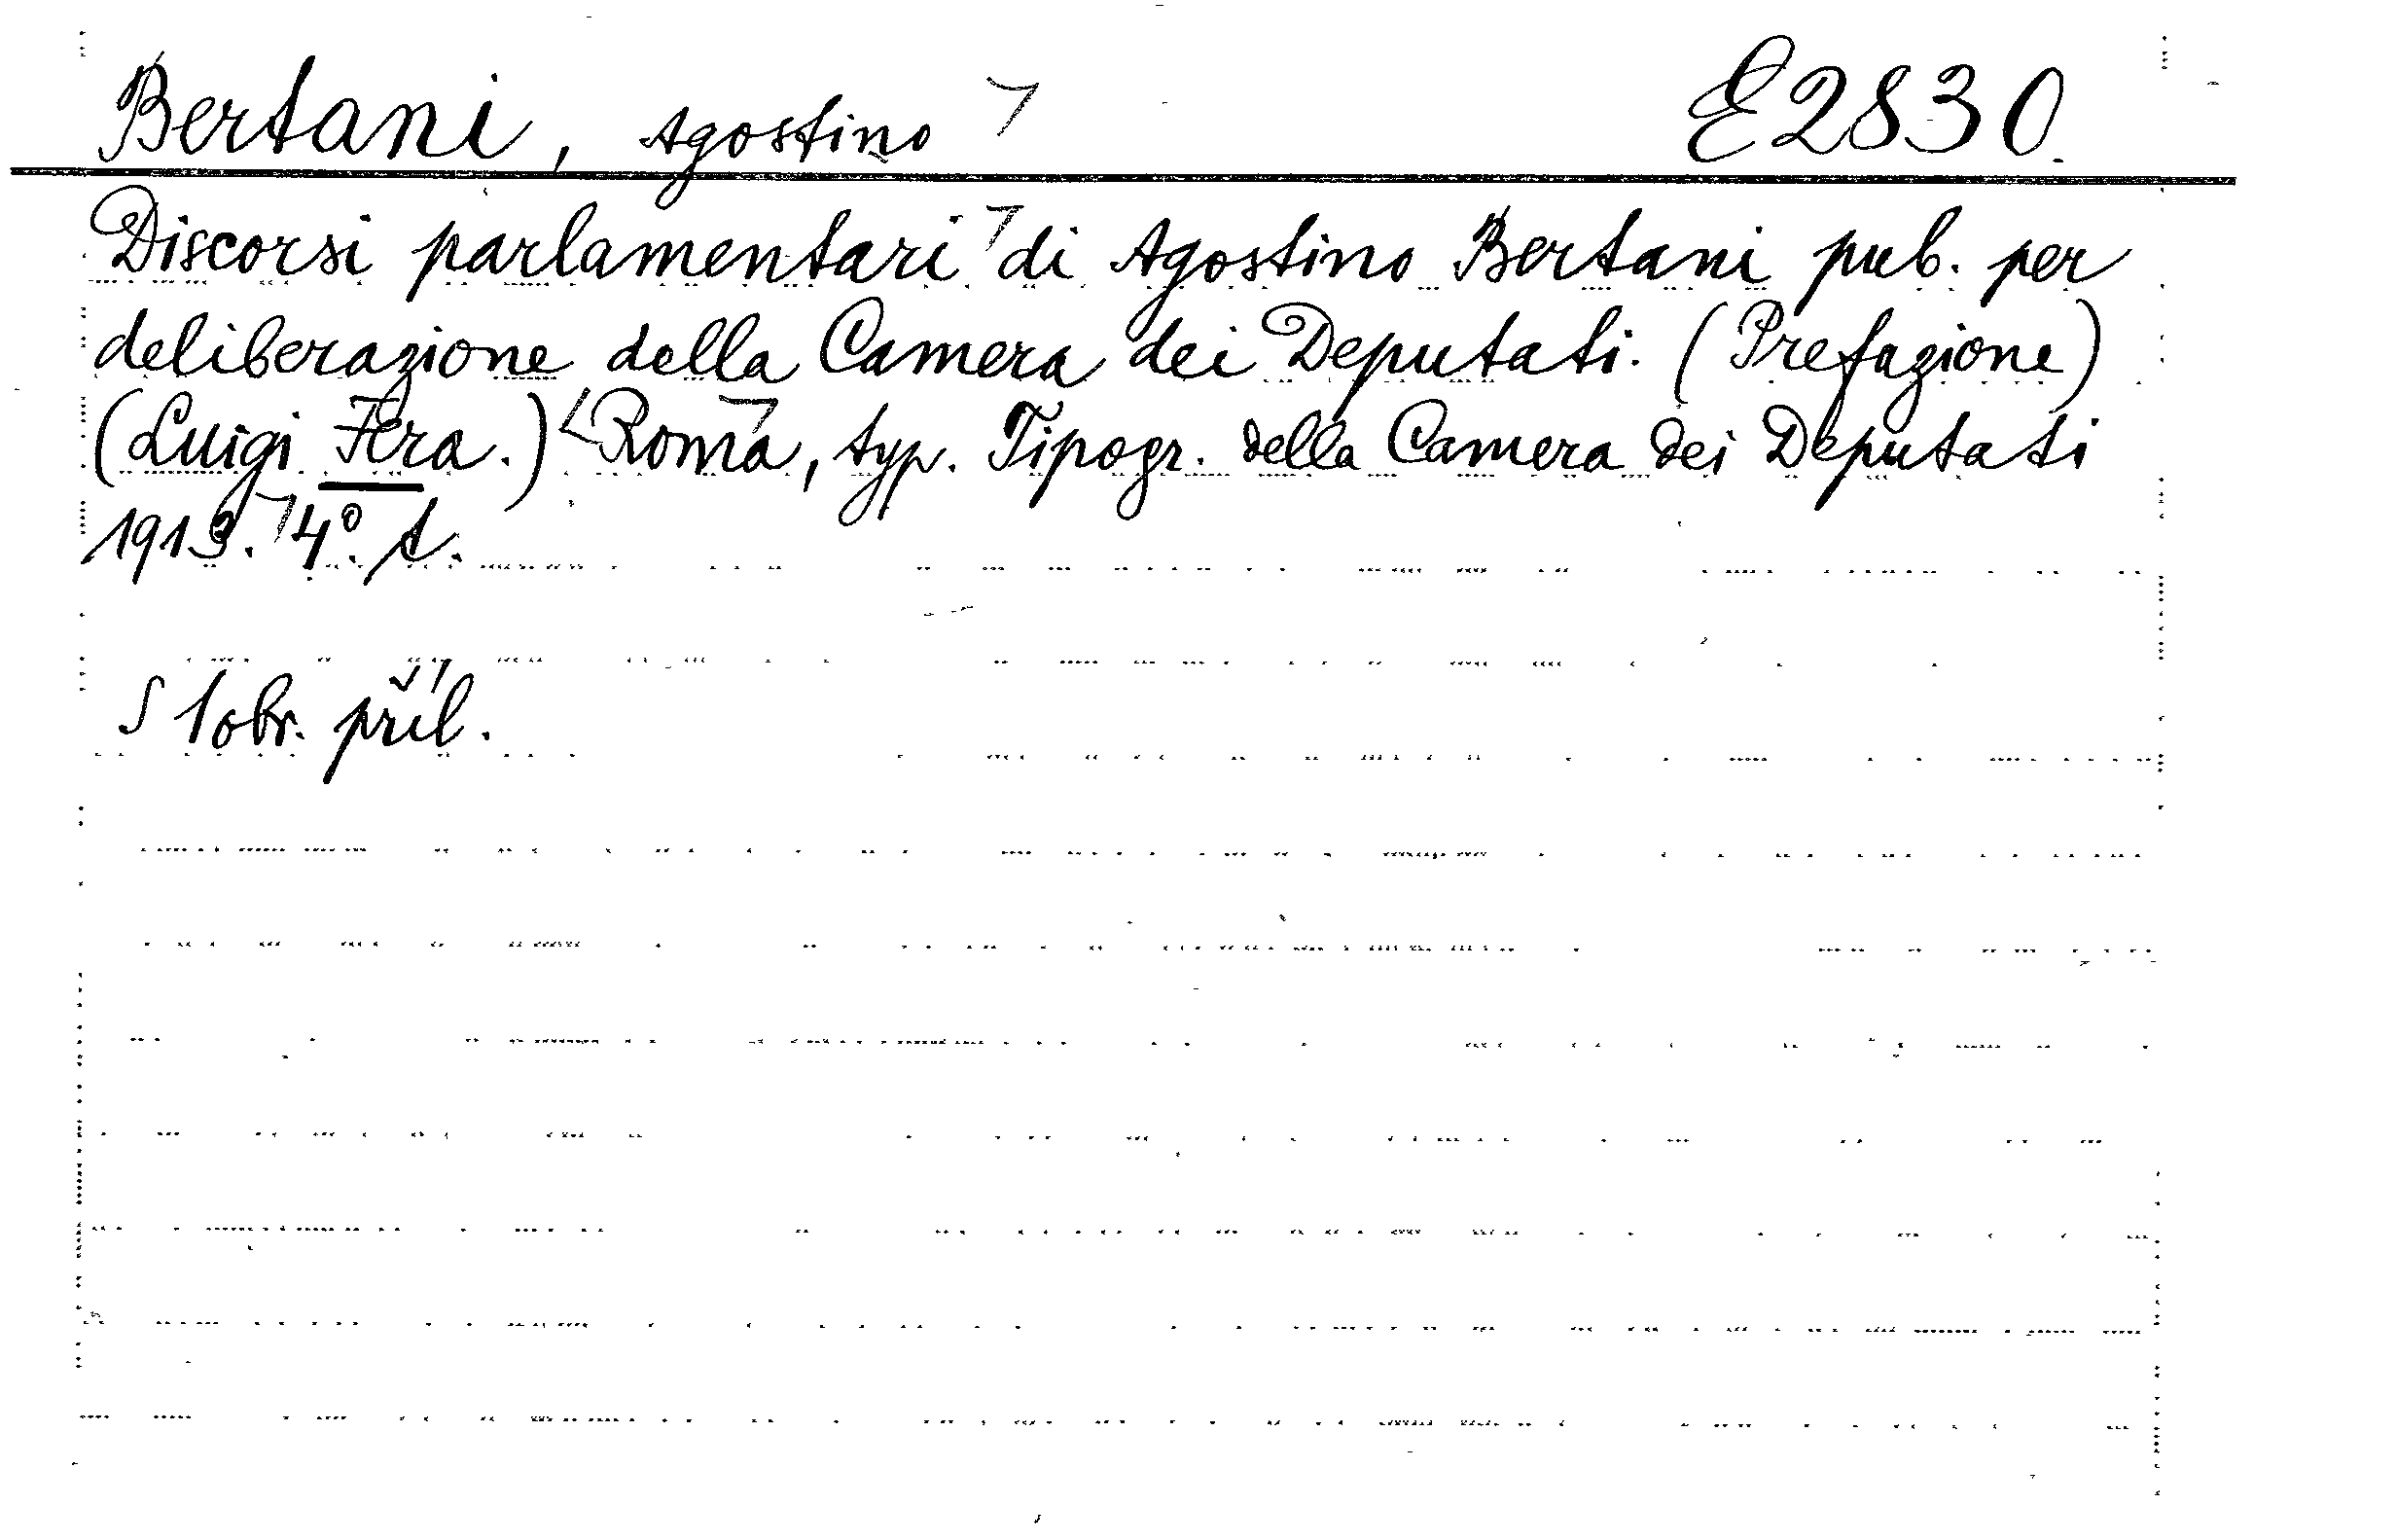 Bertani, Agostino E2830.
Discorsi parlamentari di Agostino Bertani pub. per
deliberazione della Camera dei Deputati. (Prefazione)
(Luigi Fera.) Roma, typ. Tipogr. della Camera dei Deputati
1913. 4°. t.
S 1 obr. příl.